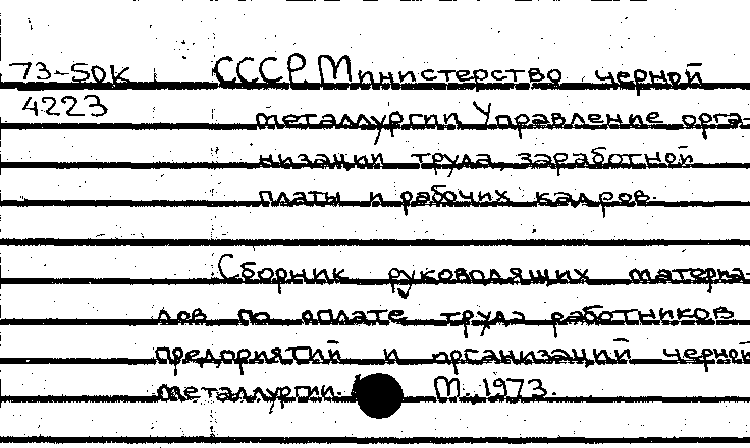 73-50К СССР. Министерство черной
4223 металлургии Управление орга-
низации труда, заработной
платы и рабочих кадров.
Сборник руководящих материа-
лов по оплате труда работников
предприятий и организаций черной
металлургии. М., 1973.